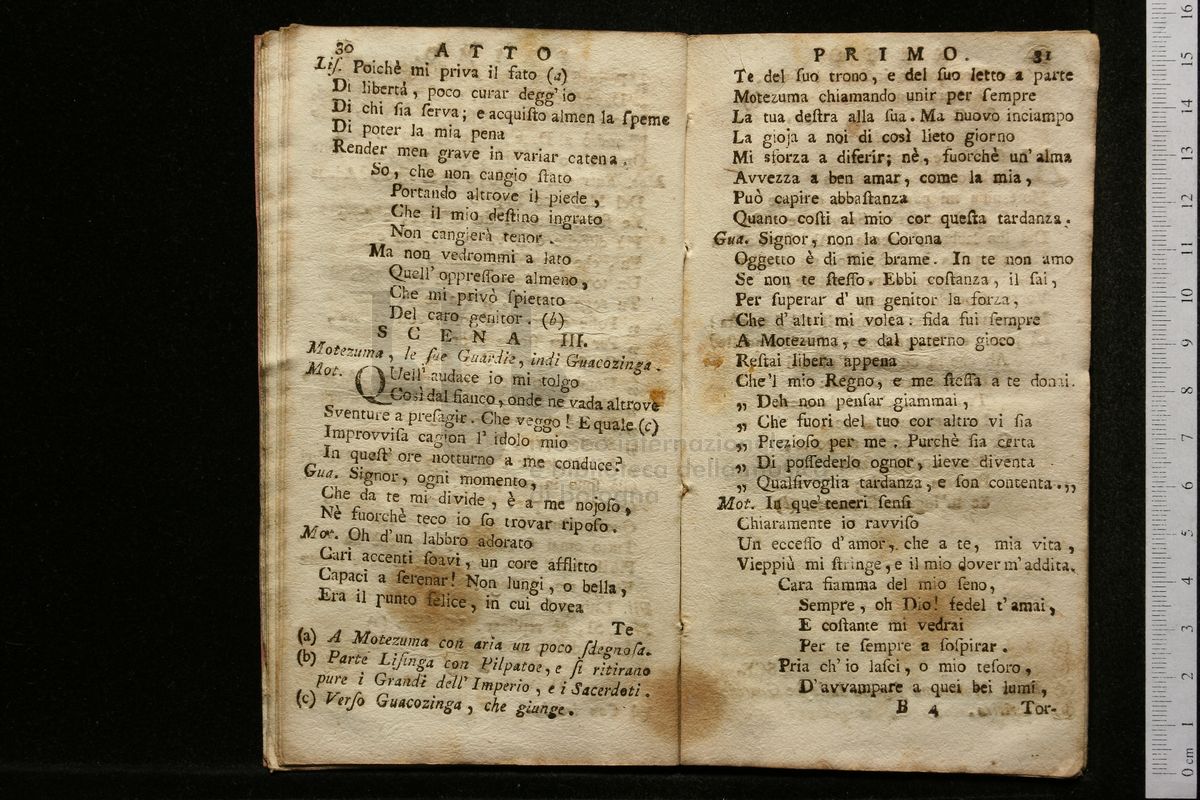 30 ATTO
Liſ. Poichè mi priva il fato (a)
Di libertá, poco curar degg' io
Di chi ſia ſerva; e acquiſto almen la ſpeme
Di poter la mia pena
Render men grave in variar catena.
So, che non cangio ſtato
Portando altrove il piede,
Che il mio deſtino ingrato
Non cangierà tenor.
Ma non vedrommi a lato
Quell' oppreſſore almeno,
Che mi privò ſpietato
Del caro genitor. (b)
SCENA III.
Motezuma, le ſue Guardie, indi Guacozinga.
Mot. QUell' audace io mi tolgo
Così dal fianco, onde ne vada altrove
Sventure a preſagir. Che veggo! E quale (c)
Improvviſa cagion l' idolo mio
In queſt' ore notturno a me conduce?
Gua. Signor, ogni momento,
Che da te mi divide, è a me nojoſo,
Nè fuorchè teco io ſo trovar ripoſo.
Mot. Oh d'un labbro adorato
Cari accenti ſoavi, un core afflitto
Capaci a ſerenar! Non lungi, o bella,
Era il punto felice, in cui dovea
Te
(a) A Motezuma con aria un poco ſdegnoſa.
(b) Parte Liſinga con Pilpatoe, e ſi ritirano
pure i Grandi dell' Imperio, e i Sacerdoti.
(c) Verſo Guacozinga, che giunge.
PRIMO. 31
Te del ſuo trono, e del ſuo letto a parte
Motezuma chiamando unir per ſempre
La tua deſtra alla ſua. Ma nuovo inciampo
La gioja a noi di così lieto giorno
Mi sforza a diferir; nè, fuorchè un' alma
Avvezza a ben amar, come la mia,
Può capire abbaſtanza
Quanto coſti al mio cor queſta tardanza.
Gua. Signor, non la Corona
Oggetto è di mie brame. In te non amo
Se non te ſteſſo. Ebbi coſtanza, il ſai,
Per ſuperar d' un genitor la forza,
Che d'altri mi volea: fida fui ſempre
A Motezuma, e dal paterno gioco
Reſtai libera appena
Che'l mio Regno, e me ſteſſa a te donai.
„ Deh non penſar giammai,
„ Che fuori del tuo cor altro vi ſia
„ Prezioſo per me. Purchè ſia certa
„ Di poſſederlo ognor, lieve diventa
„ Qualſivoglia tardanza, e ſon contenta.„
Mot. In que' teneri ſenſi
Chiaramente io ravviſo
Un ecceſſo d'amor, che a te, mia vita,
Vieppiù mi ſtringe, e il mio dover m'addita.
Cara fiamma del mio ſeno,
Sempre, oh Dio! fedel t'amai,
E coſtante mi vedrai
Per te ſempre a ſoſpirar.
Pria ch' io laſci, o mio teſoro,
D'avvampare a quei bei lumi,
B 4 Tor-